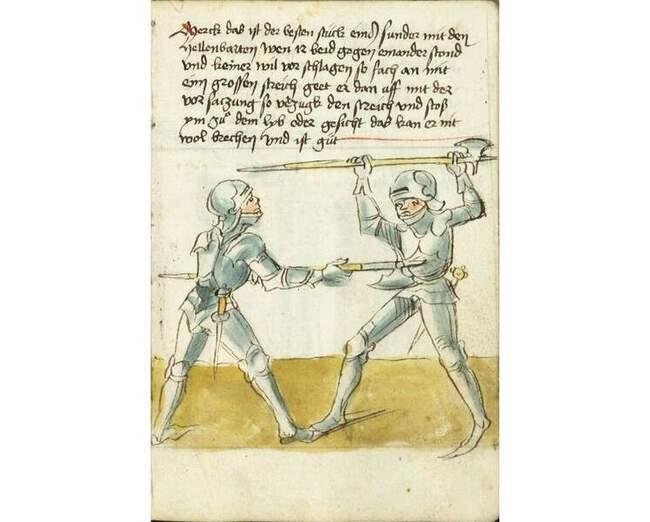 Merck das ist der besten stück eins Sunder mit den
Hellenbarten wen ir beid gegen einander stond
vnd keiner wil vor schlagen so fach an mit
eim grossen streich geet er dan vff mit der
vor saczung so vczugk den streich vnd stoß
ym zuͦ dem lyb oder gesicht das kan er nit
wol brechen vnd ist guͦt